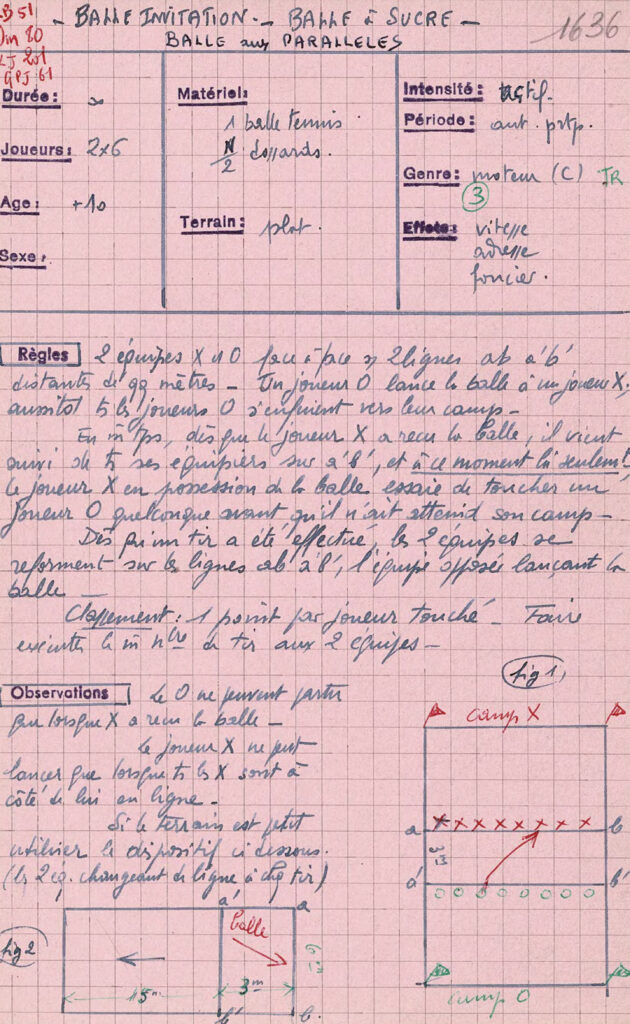 B 51
- BALLE INVITATION.- BALLE à SUCRE -
1636
BALLE aux PARALLELES
Din 80
LJ 201
GPJ 61
Durée: ∞
Joueurs: 2x6
Age: +10
Sexe:
Matériel:
1 balle tennis
N/2 dossards.
Terrain: plat.
Intensité: actif.
Période: aut. ptp.
Genre: moteur (C) JR
3
Effets: vitesse
adresse
foncier.
Règles 2 équipes X et O face à face sur 2 lignes ab a'b'
distantes de qq mètres - Un joueur O lance la balle à un joueur X,
aussitôt ts les joueurs O s'enfuient vers leur camp -
En m̂ tps, dès que le joueur X a reçu la balle, il vient
suivi de ts ses équipiers sur a'b', et à ce moment là seulemt
le joueur X en possession de la balle essaie de toucher un
joueur O quelconque avant qu'il n'ait atteind son camp -
Dès qu'un tir a été effectué, les 2 équipes se
reforment sur les lignes ab a'b', l'équipe opposée lançant la
balle -
Classement: 1 point par joueur touché - Faire
exécuter le m̂ nbre de tir aux 2 équipes -
Observations Le O ne peuvent partir
que lorsque X a reçu la balle -
Le joueur X ne peut
lancer que lorsque ts les X sont à
côté de lui en ligne -
Si le terrain est petit
utiliser le dispositif ci dessous.
(les 2 éq. changeant de ligne à chq tir)
fig 1
camp X
X X X X X X X X X
a b
3m
a' b'
O O O O O O O O
camp O
fig 2
a' a
balle
15m 3m
b' b.